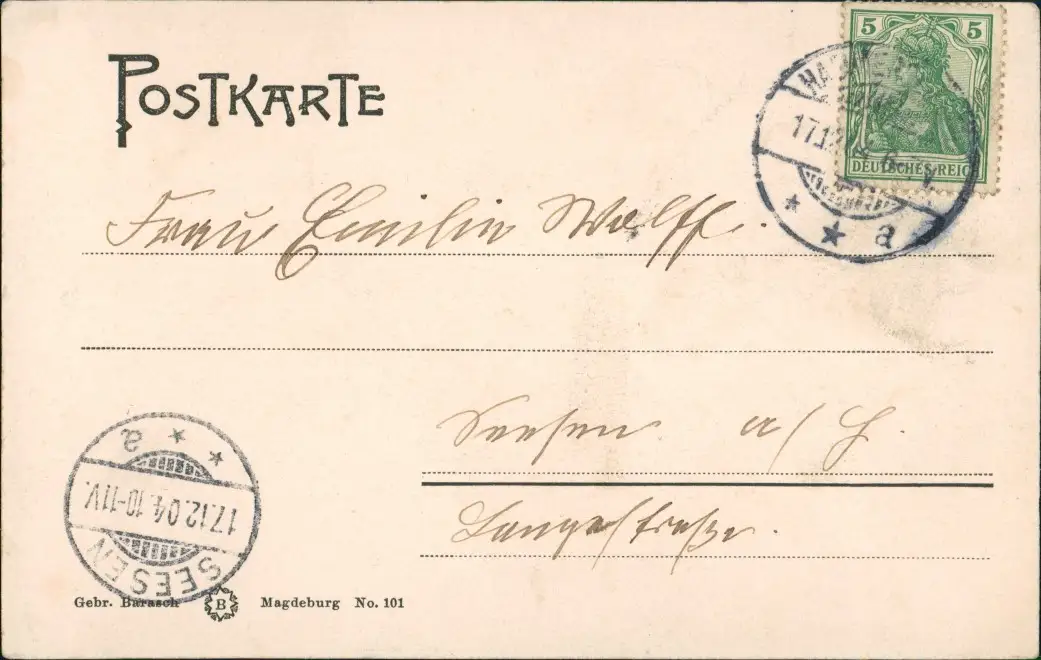 POSTKARTE
5 5
DEUTSCHES REICH
17.12.
a
Frau Emilie Wolff.
Seesen a/H.
Langestraße.
a
17.12.04. 10-11V.
SEESEN
Gebr. Barasch B Magdeburg No. 101